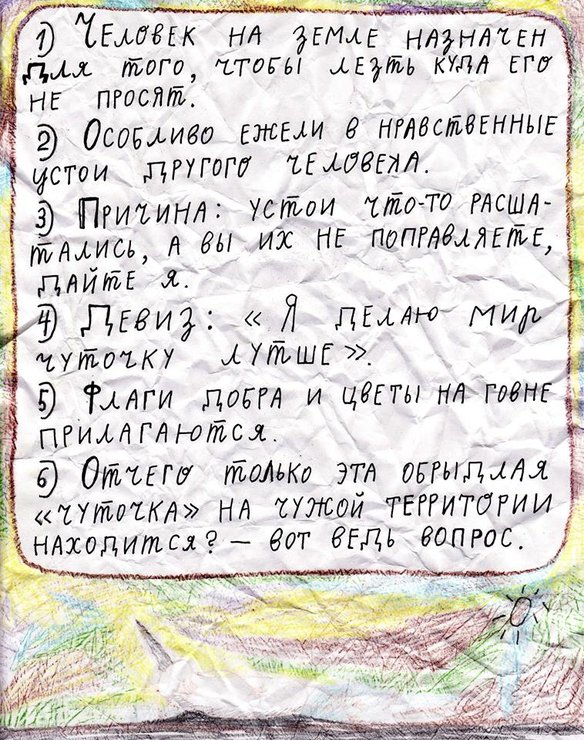 1) Человек на земле назначен
для того, чтобы лезть куда его
не просят.
2) Особливо ежели в нравственные
устои другого человека.
3) Причина: устои что-то расша-
тались, а вы их не поправляете,
дайте я.
4) Девиз: «Я делаю мир
чуточку лутше».
5) Флаги добра и цветы на говне
прилагаются.
6) Отчего только эта обрыдлая
«чуточка» на чужой территории
находится? — вот ведь вопрос.